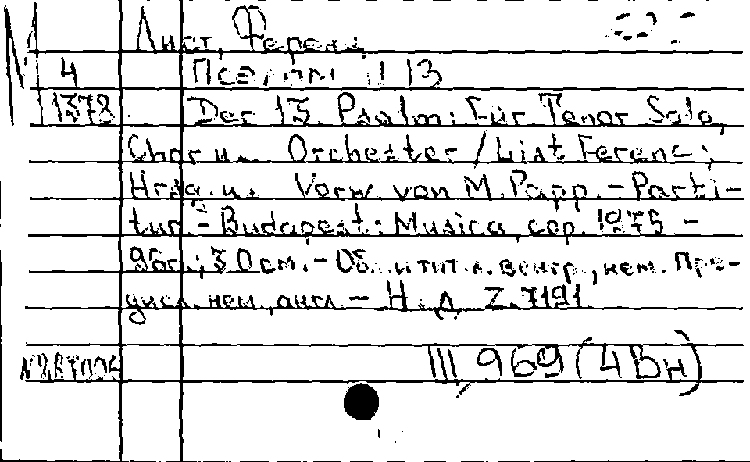 Лист, Ференц
4 Псалом 13
1378 Der 13. Psalm: Für Tenor Solo,
Chor u. Orchester / Liszt Ferenc;
Hrsg. u. Vorw. von M. Papp. - Parti-
tur. - Budapest: Musica, cop. 1975 -
96 с.; 30 см. - Об. и тит. л. венгр., нем. Пре-
дисл. нем., англ. - Н. д. Z. 7191
III, 969 (4 Вн)